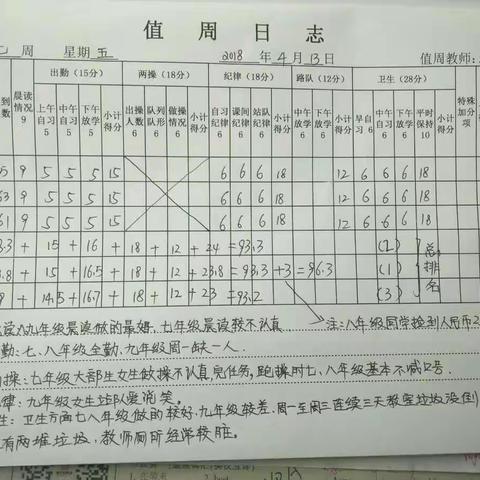 值 周 日 志
七 周 星期 五 2018 年 4 月 13 日 值周教师:
到 数 晨读情况 9 出勤(15分) 两操(18分) 纪律(18分) 路队(12分) 卫生(28分) 特殊加分项
上午自习 5 中午自习 5 下午放学 5 小计得分 出操人数 6 队列队形 6 做操情况 6 小计得分 自习纪律 6 课间纪律 6 站队纪律 6 小计得分 中午放学 6 下午放学 6 小计得分 早自习 6 中午自习 6 下午放学 6 平时保持 10 小计得分
5 9 5 5 5 15 6 6 6 18 12 6 6 6 18
63 9 5 5 5 15 6 6 6 18 12 6 6 6 18
61 9 5 5 5 15 6 6 6 18 12 6 6 6 18
3.3 + 15 + 16 + 18 + 12 + 24 = 93.3 (2) 总
3.8 + 15 + 16.5 + 18 + 12 + 23.8 = 93.3 + 3 = 96.3 (1) 排
9 + 14.5 + 16.7 + 18 + 12 + 23 = 93.2 (3) 名
九年级晨读做的最好,七年级晨读较不认真 注:八年级同学捡到人民币
勤:七、八年级全勤,九年级周一缺一人.
操:七年级大部生女生做操不认真,完任务,跑操时七、八年级基本不喊口号.
律:九年级女生站队爱说笑。
生:卫生方面七八年级做的较好,九年级较差.周一至周三连续三天教室垃圾没倒
有两堆垃圾,教师厕所经常较脏。